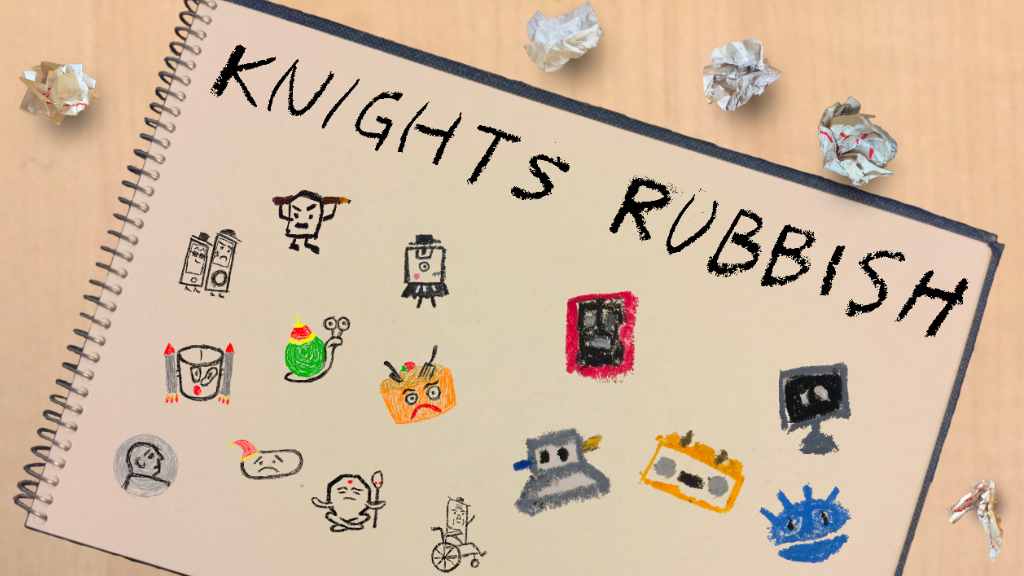 KNIGHTS RUBBISH